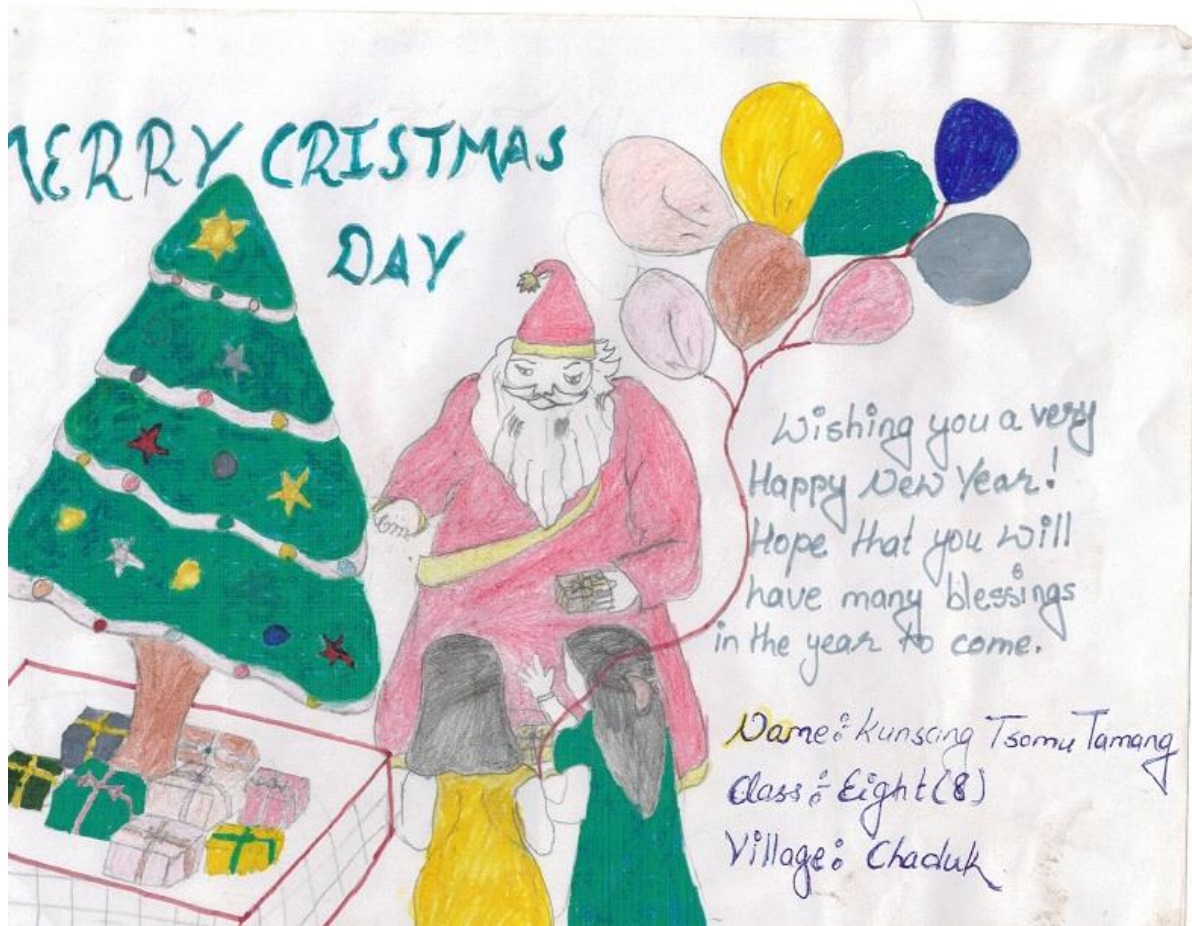 MERRY CRISTMAS
DAY
Wishing you a very
Happy New Year!
Hope that you will
have many blessings
in the year to come.
Name: Kunsang Tsomu Tamang
Class: Eight (8)
Village: Chaduk